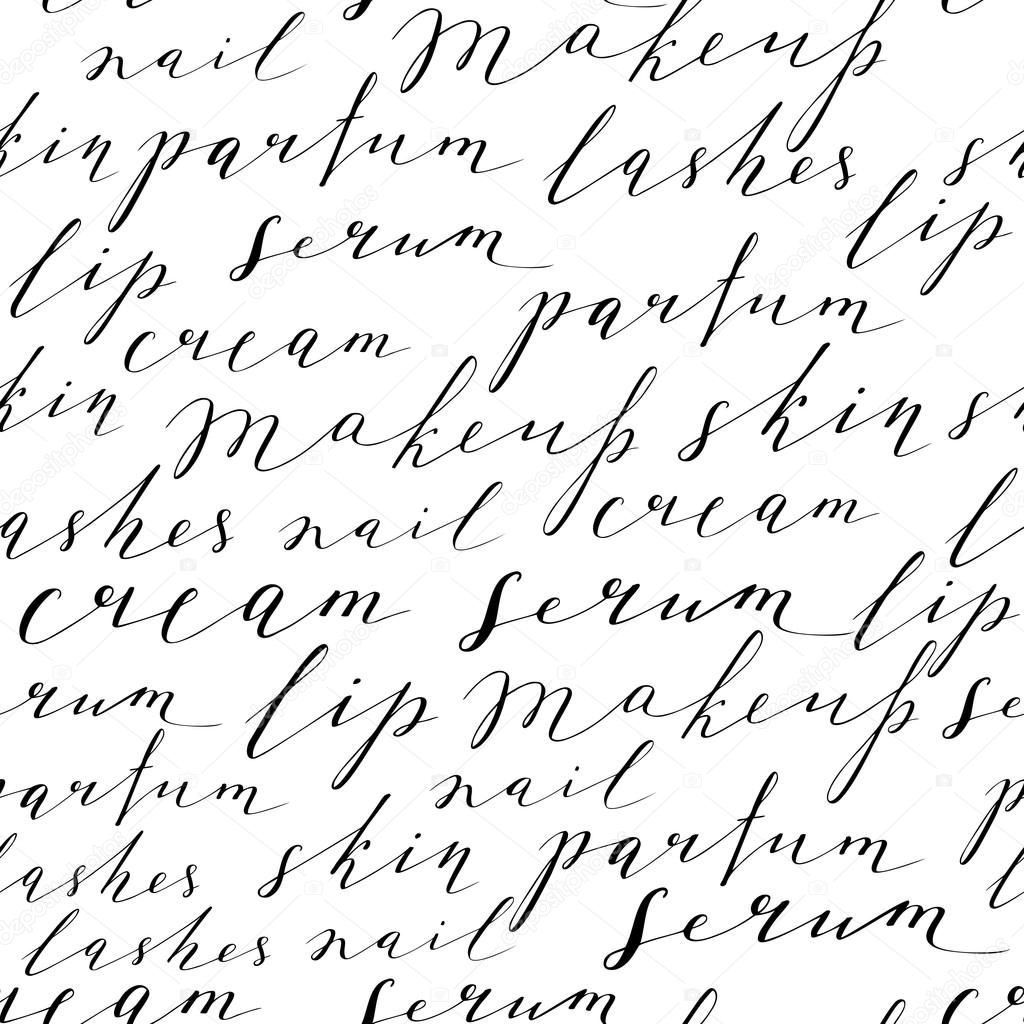 nail Makeup
kin parfum lashes
lip serum lip
cream parfum
kin Makeup skin
ashes nail cream
cream serum lip
rum lip Makeup se
arfum nail
lashes skin parfum
lashes nail serum
eam serum